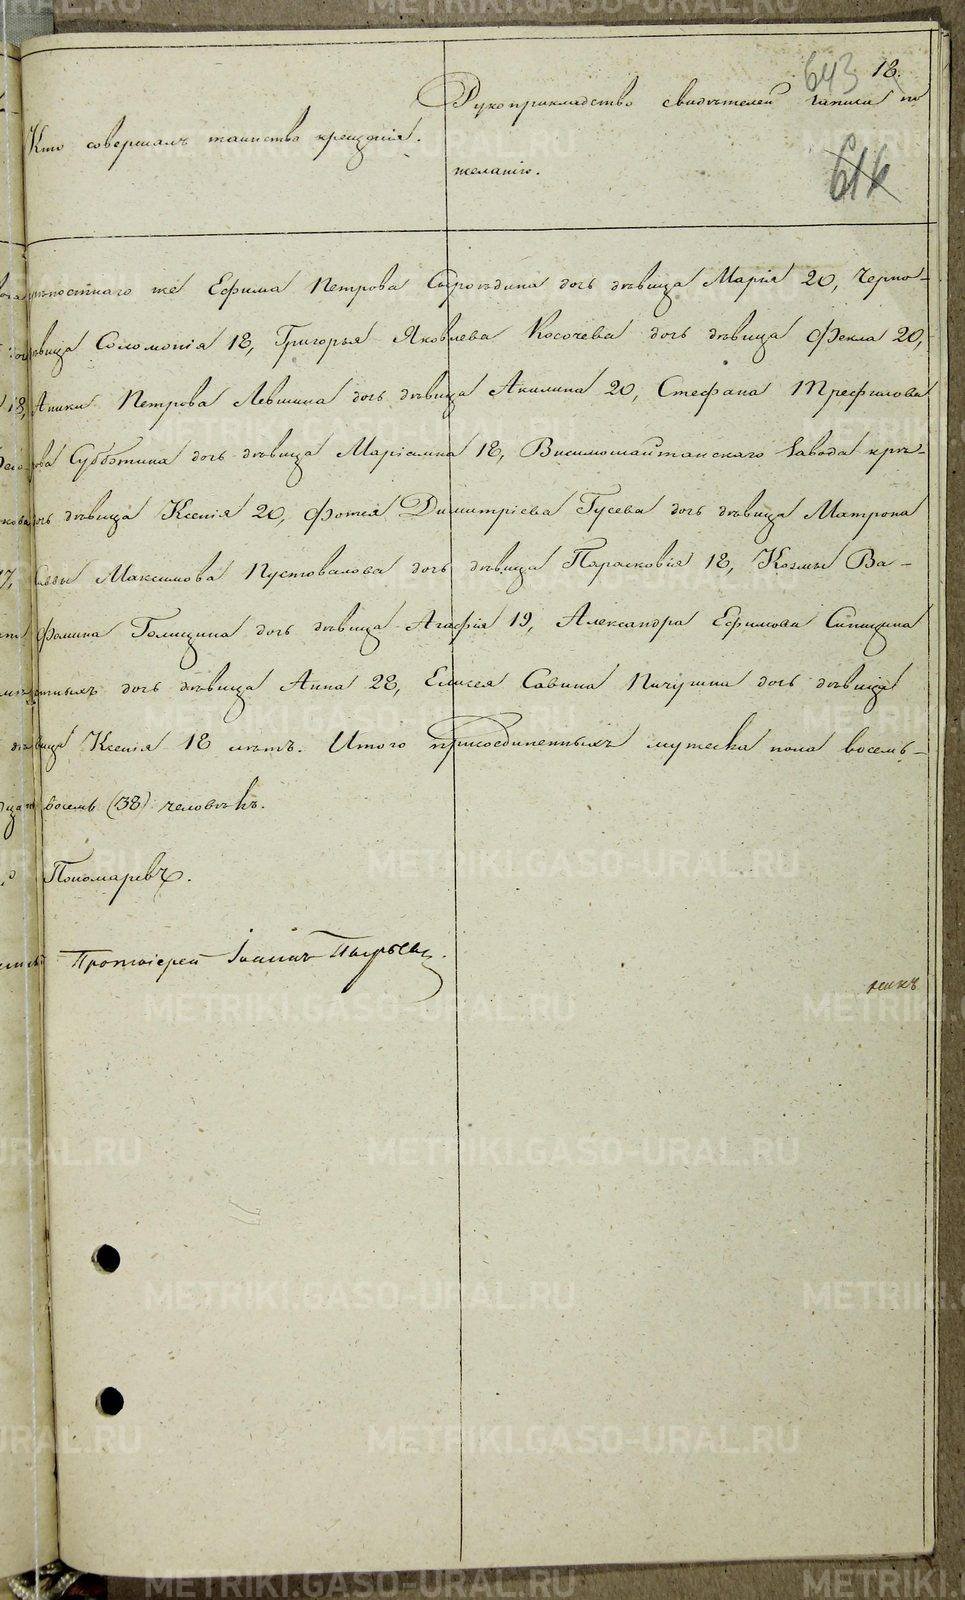 643
18.
Рукоприкладство свидѣтелей записи по
Кто совершалъ таинство крещенія.
желанію.
614
крѣпостнаго же Ефима Петрова Сыропѣдина дочь дѣвица Марія 20, Черно-
вица Соломонія 18, Григорья Яковлева Косочева дочь дѣвица Фекла 20,
18, Аники Петрова Левшина дочь дѣвица Акилина 20, Стефана Трефилова
Субботина дочь дѣвица Маріамна 18, Висимошайтанскаго завода крѣ-
дочь дѣвица Ксенія 20, Фотея Димитріева Гусева дочь дѣвица Матрона
17, Саввы Максимова Пустовалова дочь дѣвица Парасковія 18, Козмы Ва-
Фомина Голицина дочь дѣвица Агафія 19, Александра Ефимова Синицина
дочь дѣвица Анна 28, Елисея Савина Пичугина дочь дѣвица
Ксенія 18 лѣтъ. Итого присоединенныхъ мужеска пола восемь-
восемь (38) человѣкъ.
Пономаревъ.
Протоіерей Іоаннъ Пырьевъ.
никъ
METRIKI.GASO-URAL.RU